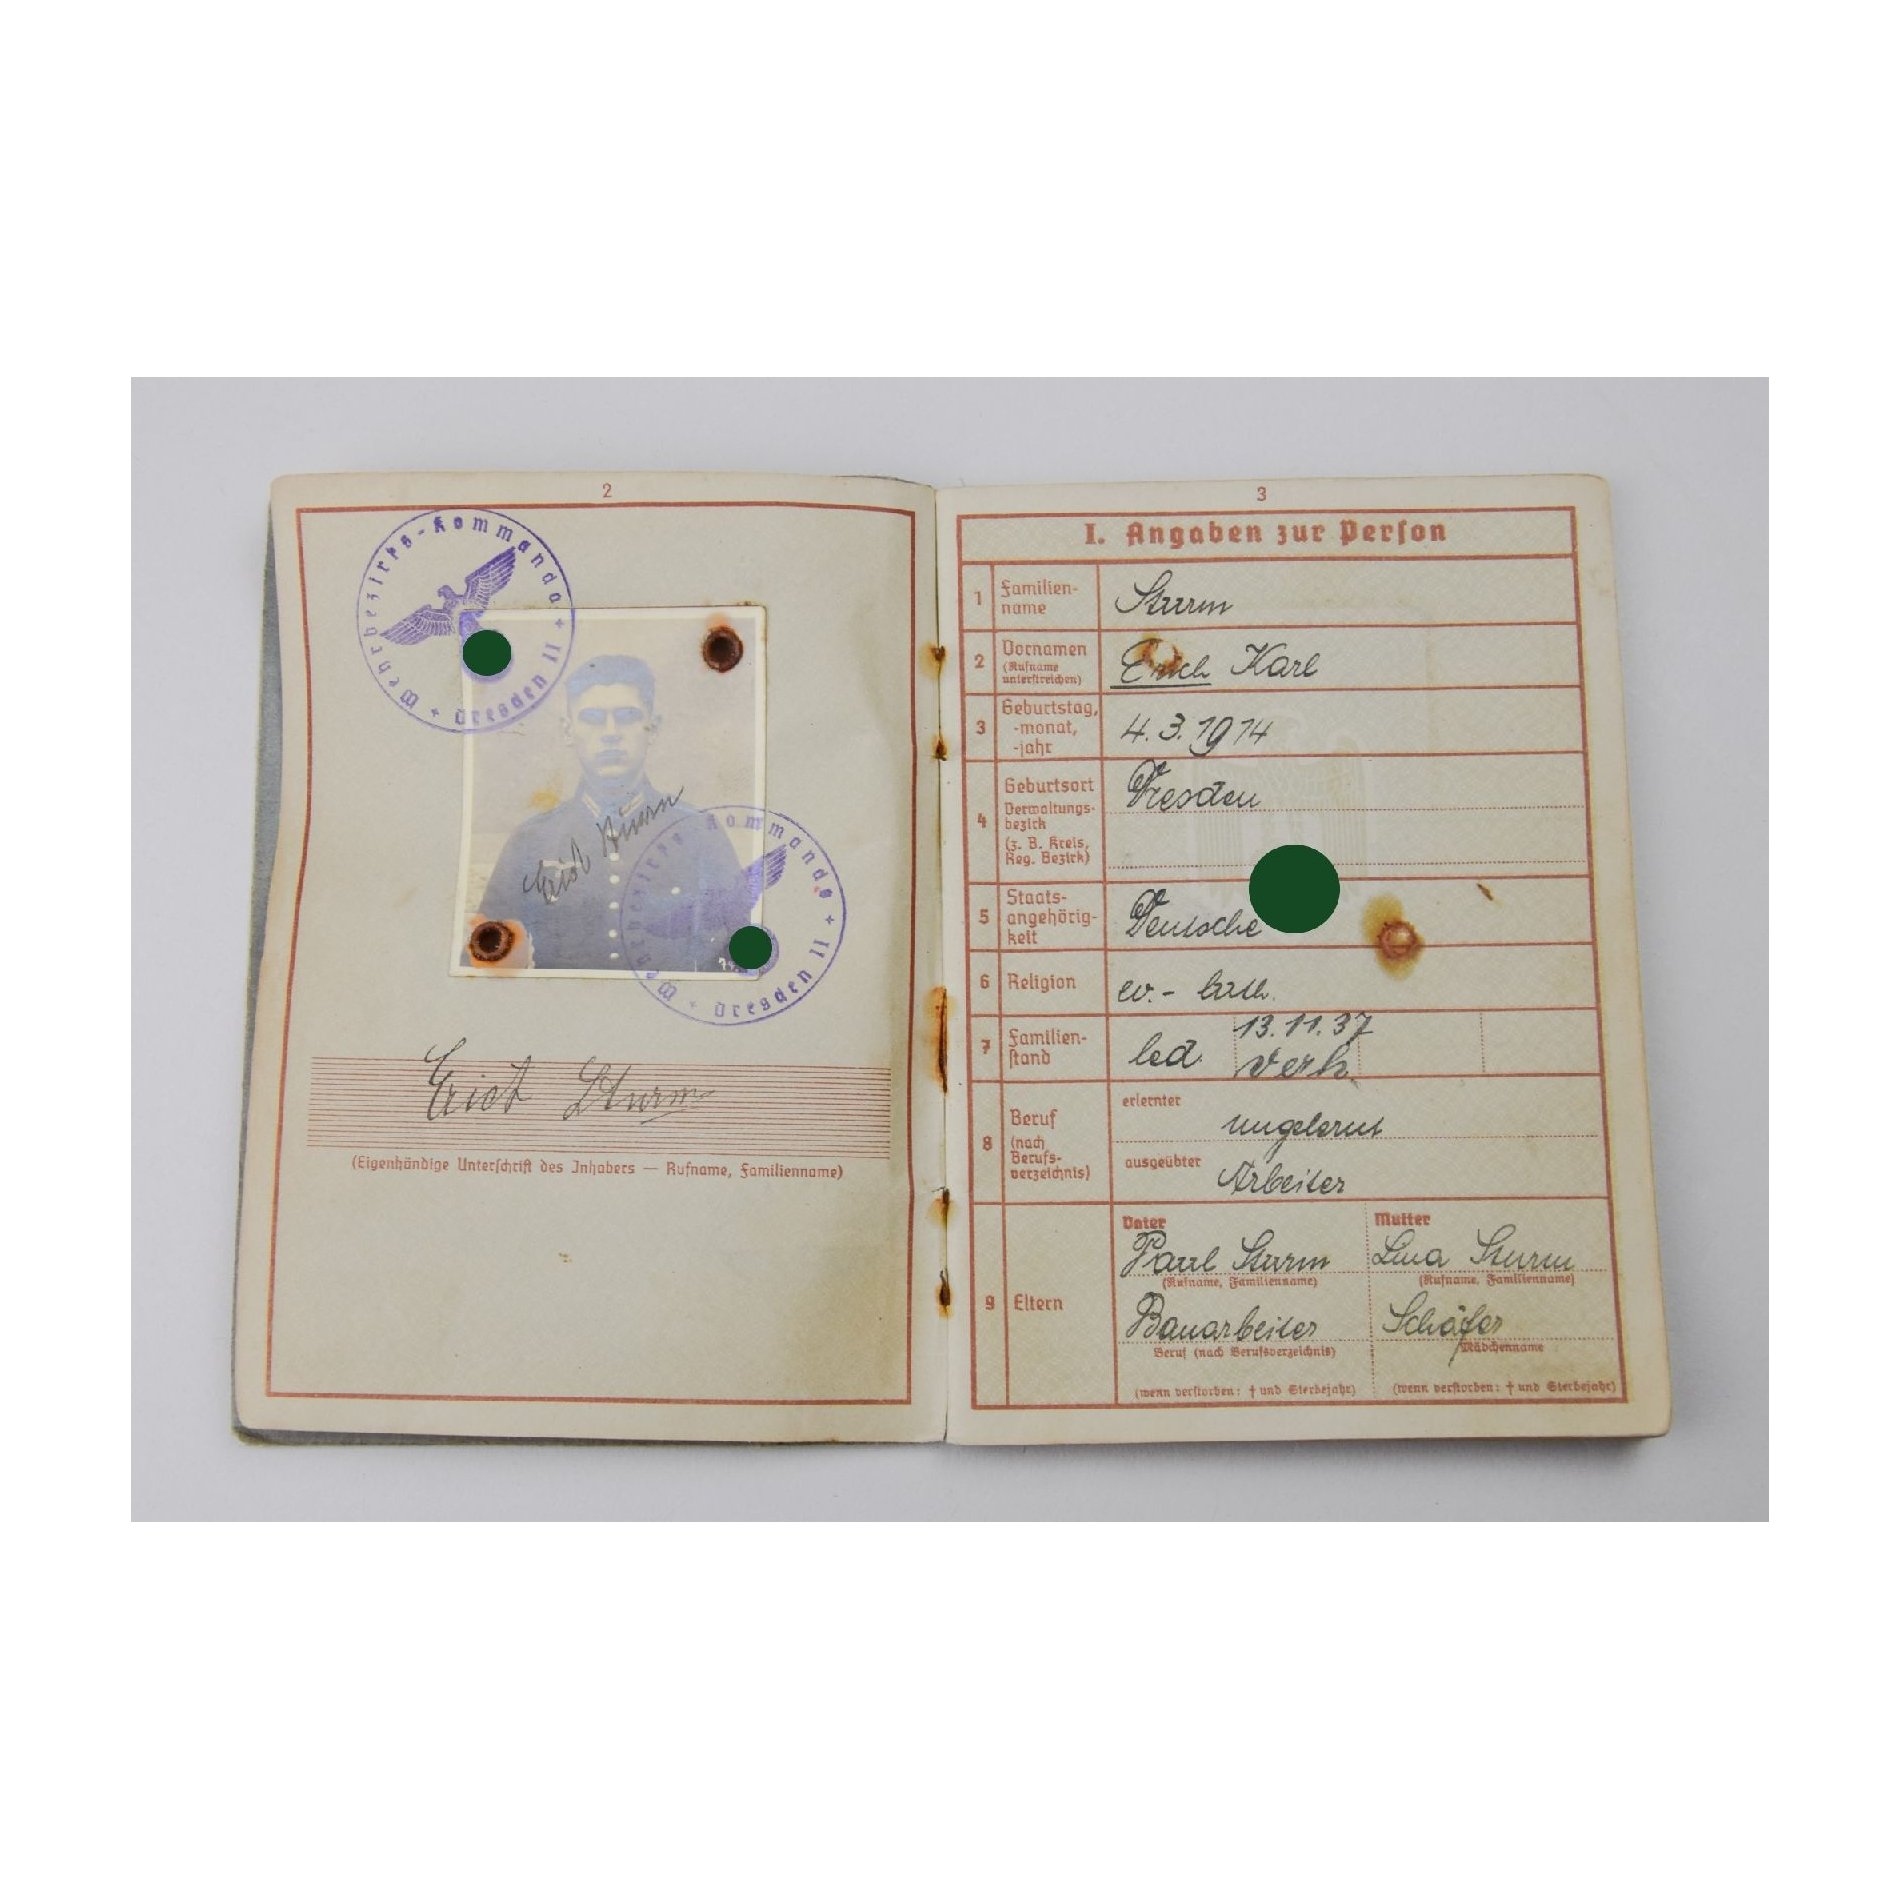 2
Wehrbezirks-Kommando
Dresden II
Erich Sturm
Wehrbezirks Kommando
Dresden II
Erich Sturm
(Eigenhändige Unterschrift des Inhabers — Rufname, Familienname)
3
I. Angaben zur Person
1 Familien-
name
Sturm
2 Vornamen
(Rufname
unterstreichen)
Erich Karl
3 Geburtstag,
-monat,
-jahr
4.3.1914
4 Geburtsort
Verwaltungs-
bezirk
(z. B. Kreis,
Reg. Bezirk)
Dresden
5 Staats-
angehörig-
keit
Deutsche
6 Religion
ev.-luth.
7 Familien-
stand
led.
13.11.37
verh.
8 Beruf
(nach
Berufs-
verzeichnis)
erlernter
ungelernt
ausgeübter
Arbeiter
9 Eltern
Vater
Paul Sturm
(Rufname, Familienname)
Bauarbeiter
Beruf (nach Berufsverzeichnis)
(wenn verstorben: † und Sterbejahr)
Mutter
Lina Sturm
(Rufname, Familienname)
Schäfer
Mädchenname
(wenn verstorben: † und Sterbejahr)